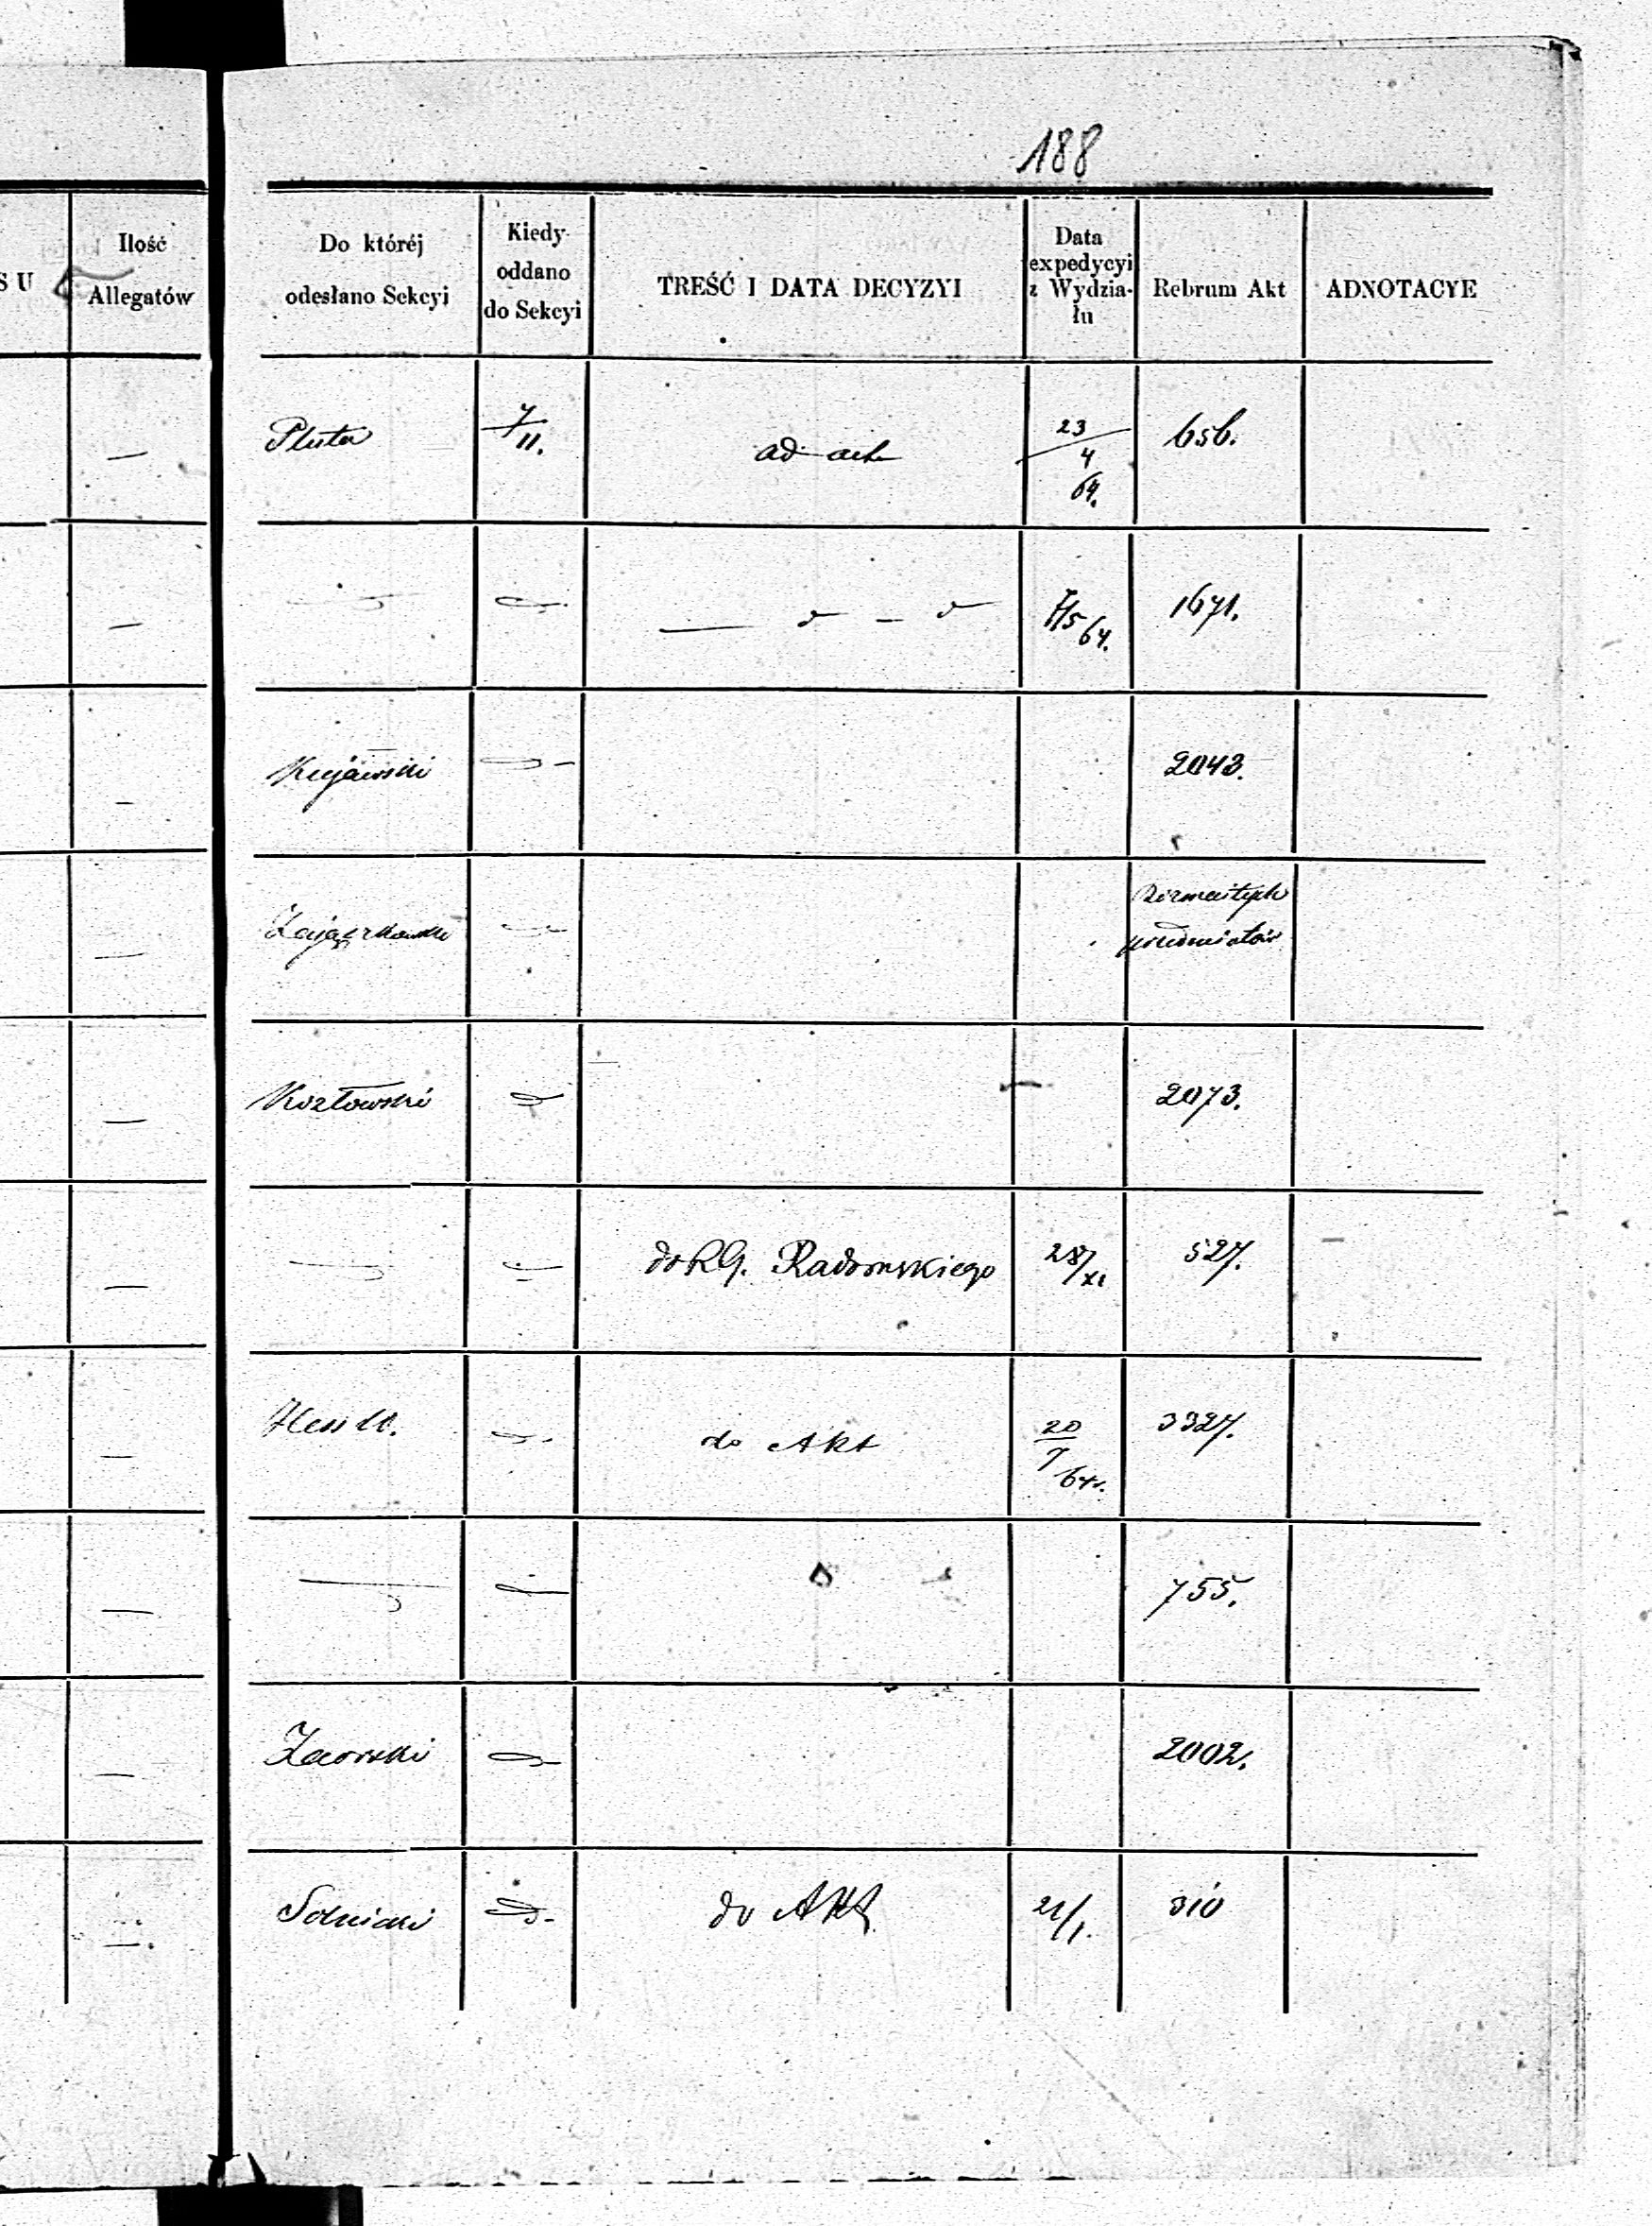 188
SU
Ilość
Allegatów
Do któréj
odesłano Sekcyi
Kiedy
oddano
do Sekcyi
TREŚĆ I DATA DECYZYI
Data
expedycyi
z Wydzia-
łu
Rebrum Akt
ADNOTACYE
—
Pluta
7/11.
ad acta
23/4
64.
656.
—
— d — d
7/5 64.
1671.
—
Kujawski
2043.
—
Zajączkowski
Rozmaitych
przedmiotów
—
Kozłowski
2073.
—
do RG. Radomskiego
28/XI
527.
—
Hess
do Akt
20/9
64r.
3327.
—
755.
—
Zaorski
2002.
—
Solnicki
do Akt
21/1.
310